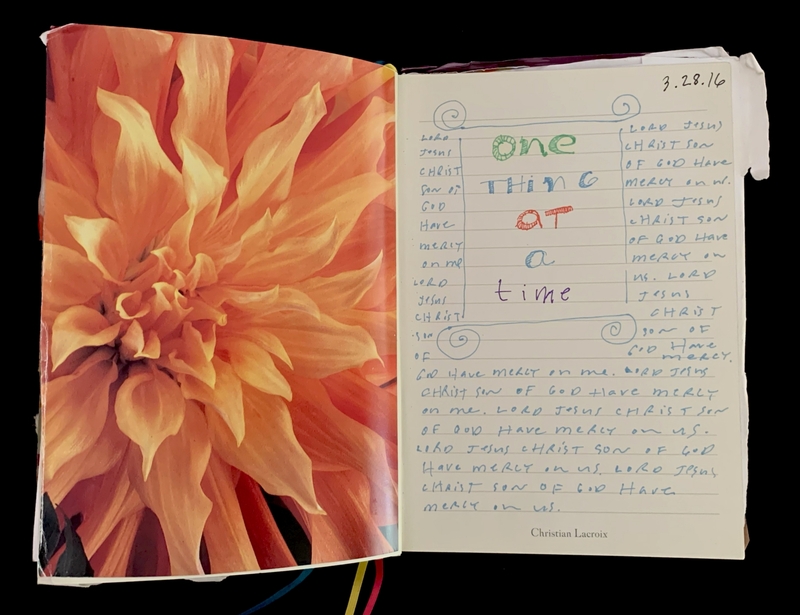 3.28.16
ONE
THING
AT
a
time
LORD
Jesus
CHRIST
SON OF
GOD
Have
mercy
on me
LORD
Jesus
CHRIST
SON
OF
LORD Jesus
CHRIST SON
OF GOD Have
mercy on us.
LORD Jesus
CHRIST SON
OF GOD Have
mercy on
us. LORD
Jesus
CHRIST
SON OF
GOD Have
mercy.
GOD Have mercy on me. LORD Jesus
CHRIST SON OF GOD Have mercy
on me. LORD Jesus CHRIST SON
OF GOD Have mercy on us.
LORD Jesus CHRIST SON OF GOD
Have mercy on us. LORD Jesus
CHRIST SON OF GOD Have
mercy on us.
Christian Lacroix